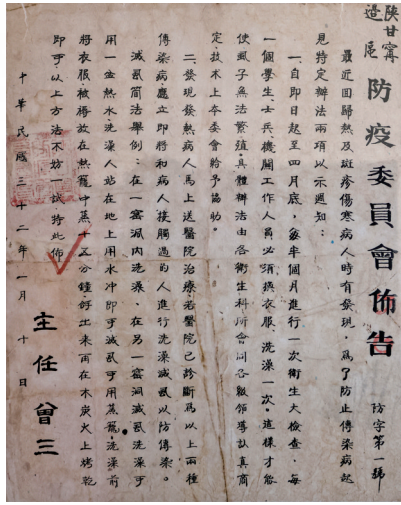 陝甘寧
邊區
防疫委員會佈告
防字第一號
最近回歸熱及斑疹傷寒病人時有發現，爲了防止傳染病起
見特定辦法兩項以示週知：
一、自即日起至四月底，每半個月進行一次衛生大檢查，每
一個學生、士兵、機關工作人員必須換衣服、洗澡一次。這樣才能
使虱子無法繁殖。具體辦法由各衛生科所會同各級領導認真商
定，技术上本委會給予協助。
二、發現發熱病人馬上送醫院治療，若醫院已診斷爲以上兩種
傳染病應立即將和病人接觸過的人進行洗澡滅虱以防傳染。
滅虱簡法舉例：在一窰洞内洗澡、在另一窰洞滅虱洗澡可
用一盆熱水洗澡人站在地上用水冲即可滅虱可用蒸籠，洗澡前
將衣服被褥放在熱籠中蒸十五分鐘好出来再在木炭火上烤乾
即可，以上方法不妨一試特此佈
中華民國三十二年一月十日
主任曾三